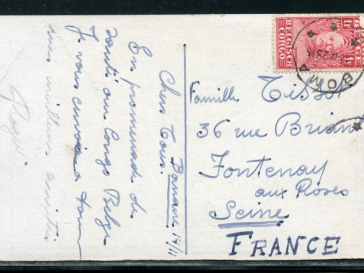 Banane 14/11
Chers Tous.
En promenade de
santé au Congo Belge
Je vous envoie a tous
mes meilleurs amitiés
Roger
BELGISCH
CONGO
BOMA
Famille Tissot
36 rue Brian
Fontenay
aux Roses
Seine
FRANCE